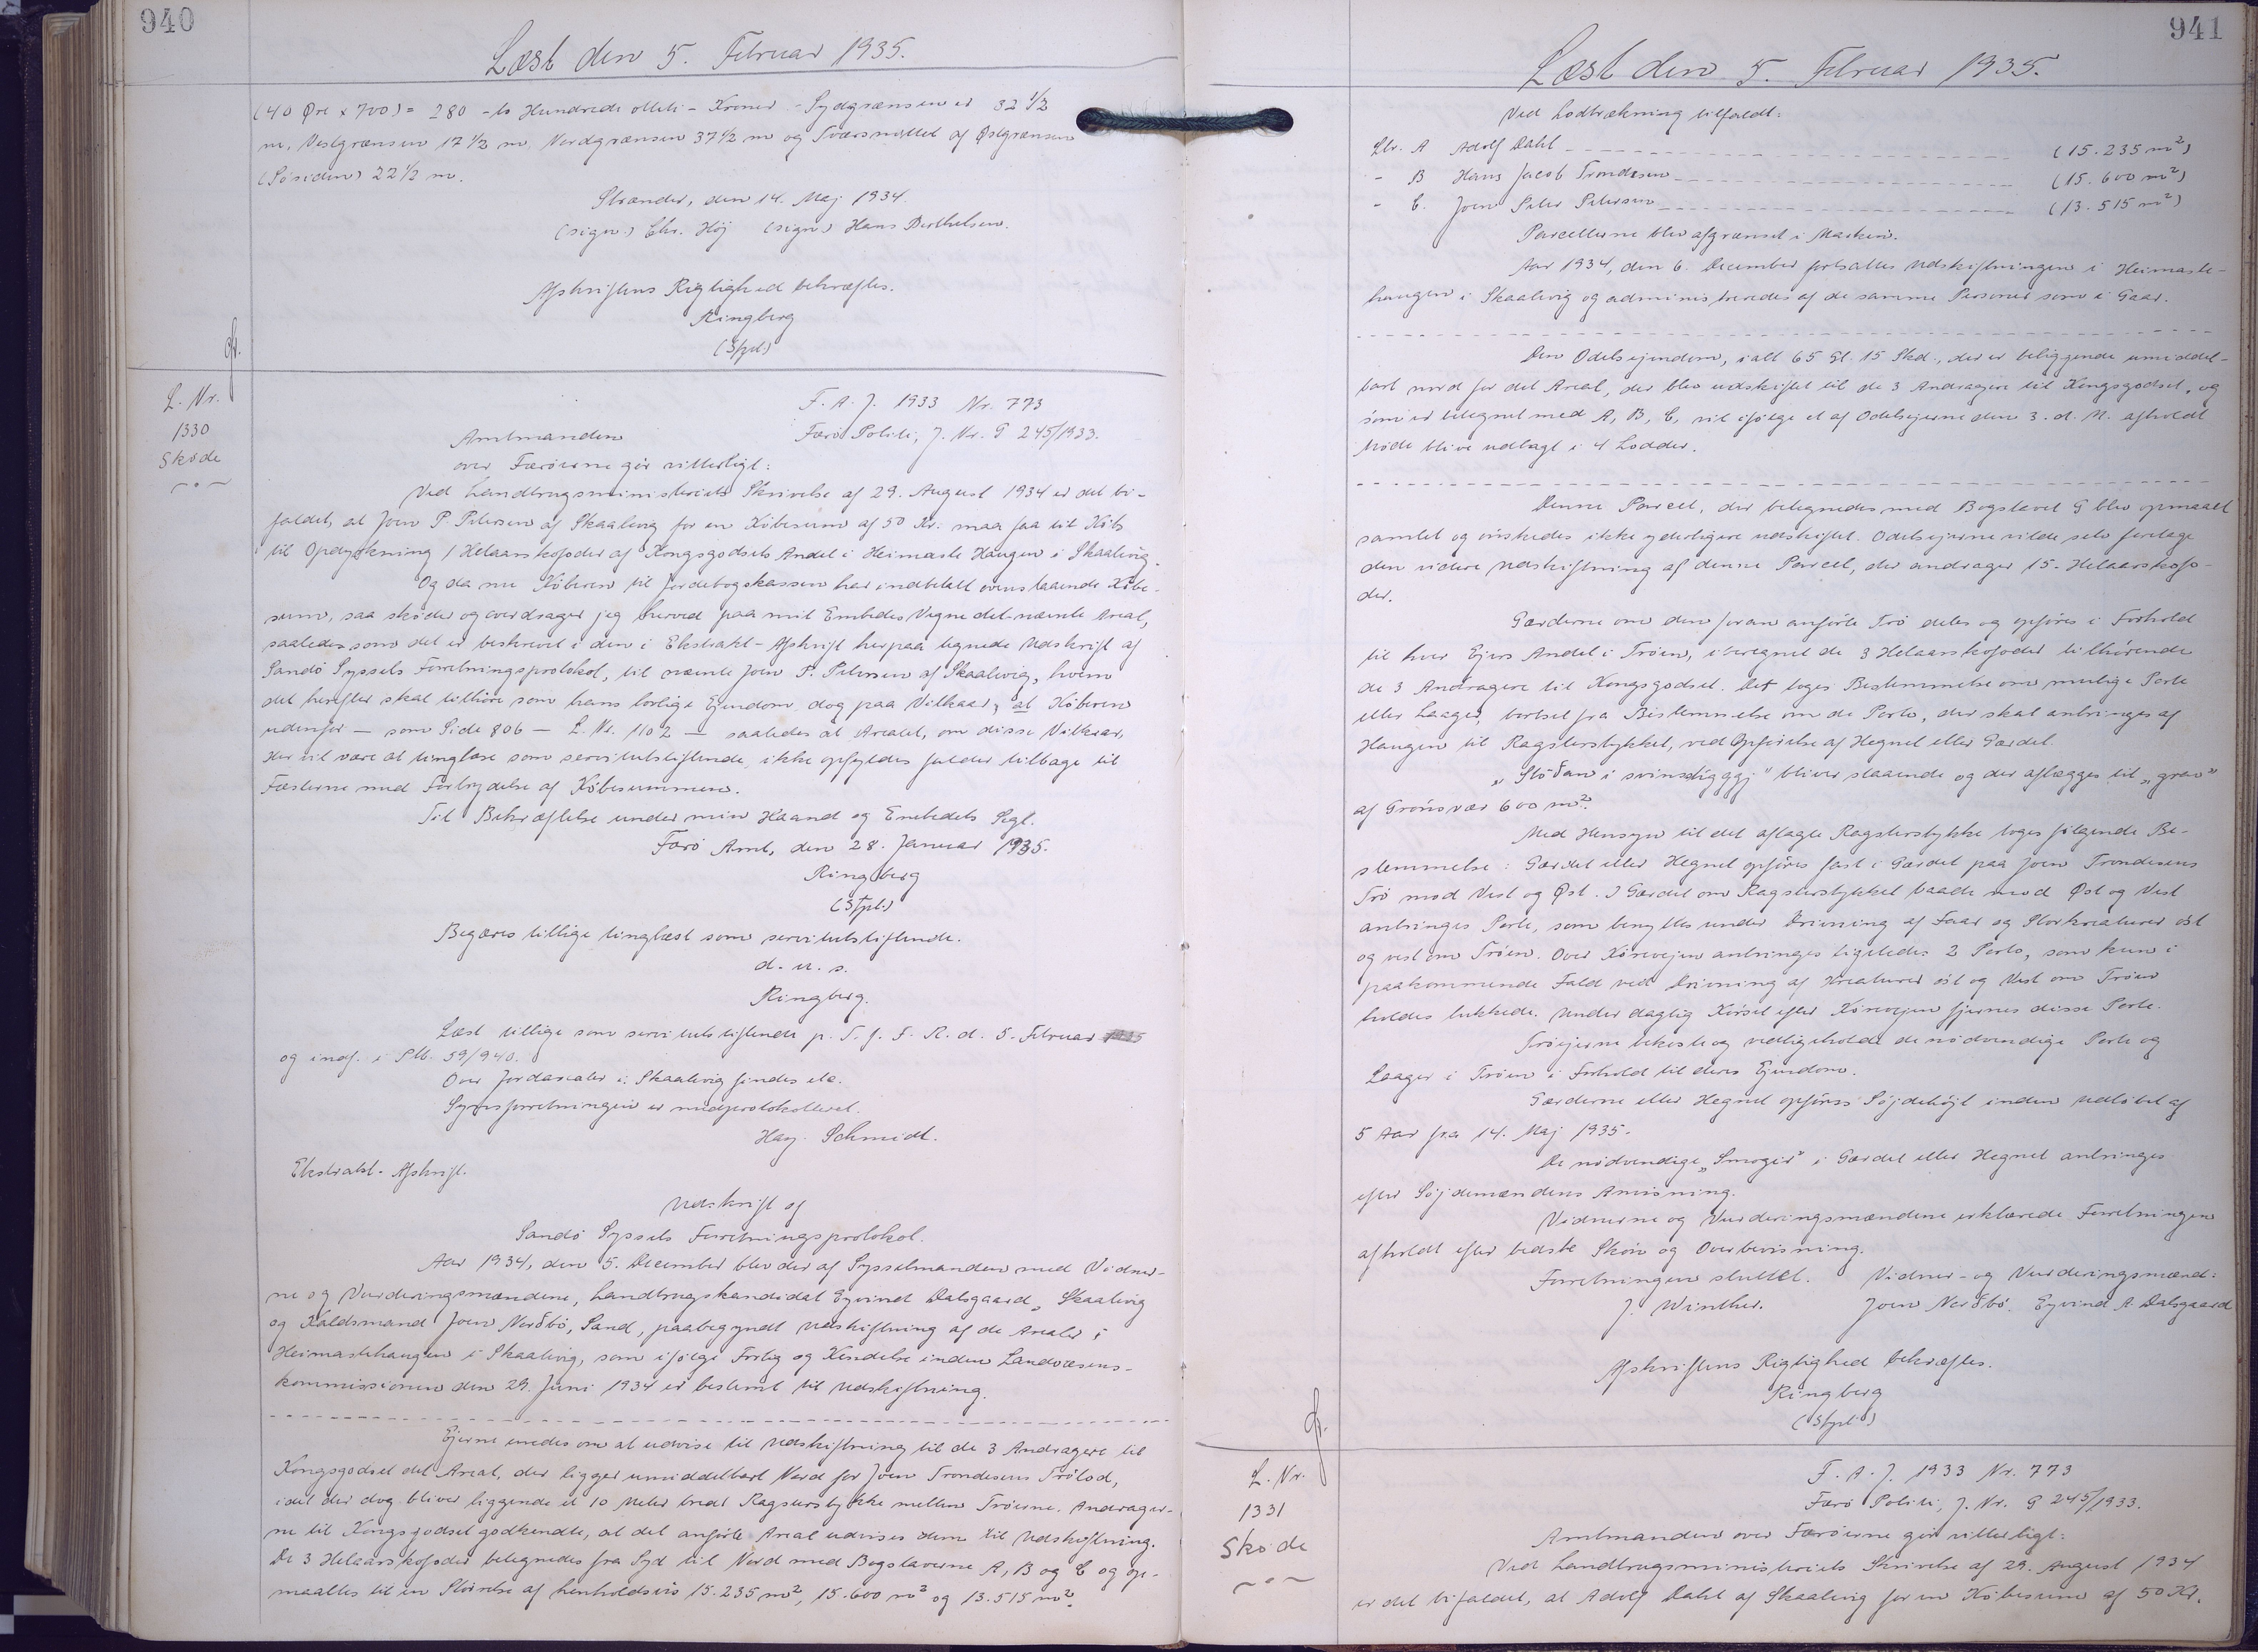 940
Læst den 5. Februar 1935.
(40 Øre x 700) = 280 - to Hundrede otteti - Kroner. - Sydgrænsen er 32 1/2
m, Vestgrænsen 17 1/2 m, Nordgrænsen 37 1/2 m og Tværsnittet af Østgrænsen
(Søsiden) 22 1/2 m.
Strænder, den 14. Maj 1934.
(sign.) Chr. Høj (sign.) Hans Berthelsen.
Afskriftens Rigtighed bekræftes.
Ringberg
(Stpl.)
L. Nr.
1330
Skøde
F. A. J. 1933 Nr. 773
Amtmanden Færø Politi, J. Nr. G 245/1933.
over Færøerne gør vitterligt:
Ved Landbrugsministeriets Skrivelse af 29. August 1934 er det bi-
faldet, at Joen P. Petersen af Skaalevig for en Købesum af 50 Kr. maa faa til Købs
til Opdyrkning 1 Helaarskofoder af Kongsgodsets Andel i Heimaste Haugen i Skaalevig.
Og da nu Køberen til Jordebogskassen har indbetalt ovenstaaende Købe-
sum, saa skøder og overdrager jeg herved paa mit Embedes Vegne det nævnte Areal,
saaledes som det er beskrevet i den i Ekstrakt-Afskrift herpaa tegnede Udskrift af
Sandø Syssels Forretningsprotokol, til nævnte Joen P. Petersen af Skaalevig, hvem
det herefter skal tilhøre som hans lovlige Ejendom, dog paa Vilkaar, at Køberen
udenfor — som Side 806 — L. Nr. 1102 — saaledes at Arealet, om disse Vilkaar,
der vil være at tinglæse som servitutstiftende, ikke opfyldes falder tilbage til
Fæsterne med Fortrydelse af Købesummen.
Til Bekræftelse under min Haand og Embedets Segl.
Færø Amt, den 28. Januar 1935.
Ringberg
(Stpl.)
Begæres tillige tinglæst som servitutstiftende.
d. u. s.
Ringberg.
Læst tillige som servitutstiftende p. T. f. F. R. d. 5. Februar 1935
og indf. i Ptb. 59/940.
Over Jordarealer i Skaalevig findes etc.
Synsforretningen er medprotokolleret.
Hay-Schmidt.
Ekstrakt-Afskrift.
Udskrift af
Sandø Syssels Forretningsprotokol.
Aar 1934, den 5. December blev der af Sysselmanden med Vidner-
ne og Vurderingsmændene, Landbrugskandidat Eyvind Dalsgaard, Skaalevig
og Kaldsmand Joen Norðbø, Sand, paabegyndt Udskiftning af de Arealer i
Heimastehaugen i Skaalevig, som ifølge Forlig og Kendelse inden Landvæsens-
kommissionen den 29. Juni 1934 er bestemt til Udskiftning.
Ejerne enedes om at udvise til Udskiftning til de 3 Andragere til
Kongsgodset det Areal, der ligger umiddelbart Nord for Joen Trondesens Trølod,
idet der dog bliver liggende et 10 Meter bredt Ragstersstykke mellem Trøerne. Andrager-
ne til Kongsgodset godkendte, at det anførte Areal udvises dem til Udskiftning.
De 3 Helaarskofoder betegnedes fra Syd til Nord med Bogstaverne A, B og C og op-
maaltes til en Størrelse af henholdsvis 15.235 m², 15.600 m² og 13.515 m².
941
Læst den 5. Februar 1935.
Ved Lodtrækning tilfaldt:
Ltr. A Adolf Dahl (15.235 m²)
- B Hans Jacob Trondesen (15.600 m²)
- C. Joen Peter Petersen (13.515 m²)
Parcellerne blev afgrænset i Marken.
Aar 1934, den 6. December fortsattes Udskiftningen i Heimaste-
haugen i Skaalevig og administreredes af de samme Personer som i Gaar.
Den Odelsejendom, ialt 65 Gl. 15 Skd., der er beliggende umiddel-
bart nord for det Areal, der blev udskiftet til de 3 Andragere til Kongsgodset, og
som er betegnet med A, B, C, vil ifølge et af Odelsejerne den 3. d. M. afholdt
Møde blive udlagt i 4 Lodder.
Denne Parcel, der betegnedes med Bogstavet G blev opmaalt
samlet og ønskedes ikke yderligere udskiftet. Odelsejerne vilde selv foretage
den videre Udskiftning af denne Parcel, der andrager 15. Helaarskofo-
der.
Gærderne om den foran anførte Trø deles og opføres i Forhold
til hver Ejers Andel i Trøen, iberegnet de 3 Helaarskofoder tilhørende
de 3 Andragere til Kongsgodset. Det toges Bestemmelse om mulige Porte
eller Laager, bortset fra Bestemmelse om de Porte, der skal anbringes af
Haugen til Ragstersstykket, ved Opførelse af Hegnet eller Gærdet.
„Støðan i svinsdiggj” bliver staaende og der aflægges til „grev”
af Grønsvær 600 m².
Med Hensyn til det aflagte Ragstersstykke toges følgende Be-
stemmelse: Gærdet eller Hegnet opføres fast i Gærdet paa Joen Trondesens
Trø mod Vest og Øst. I Gærdet om Ragstersstykket baade mod Øst og Vest
anbringes Porte, som benyttes under Drivning af Faar og Storkreaturer øst
og vest om Trøen. Over Kørevejen anbringes ligeledes 2 Porte, som kun i
paakommende Fald ved Drivning af Kreaturer øst og Vest om Trøen
holdes lukkede. Under daglig Kørsel efter Kørevejen fjernes disse Porte.
Trøejerne bekoste og vedligeholde de nødvendige Porte og
Laager i Trøen i Forhold til deres Ejendom.
Gærderne eller Hegnet opføres Søjdehøjt inden Udløbet af
5 Aar fra 14. Maj 1935.
De nødvendige „Smogir” i Gærdet eller Hegnet anbringes
efter Søjdemændens Anvisning.
Vidnerne og Vurderingsmændene erklærede Forretningen
afholdt efter bedste Skøn og Overbevisning.
Forretningen sluttet. Vidner- og Vurderingsmænd:
J. Winther. Joen Norðbø. Eyvind A. Dalsgaard
Afskriftens Rigtighed bekræftes.
Ringberg
(Stpl.)
L. Nr.
1331
Skøde
F. A. J. 1933 Nr. 773
Færø Politi, J. Nr. G 245/1933.
Amtmanden over Færøerne gør vitterligt:
Ved Landbrugsministeriets Skrivelse af 29. August 1934
er det bifaldet, at Adolf Dahl af Skaalevig for en Købesum af 50 Kr.